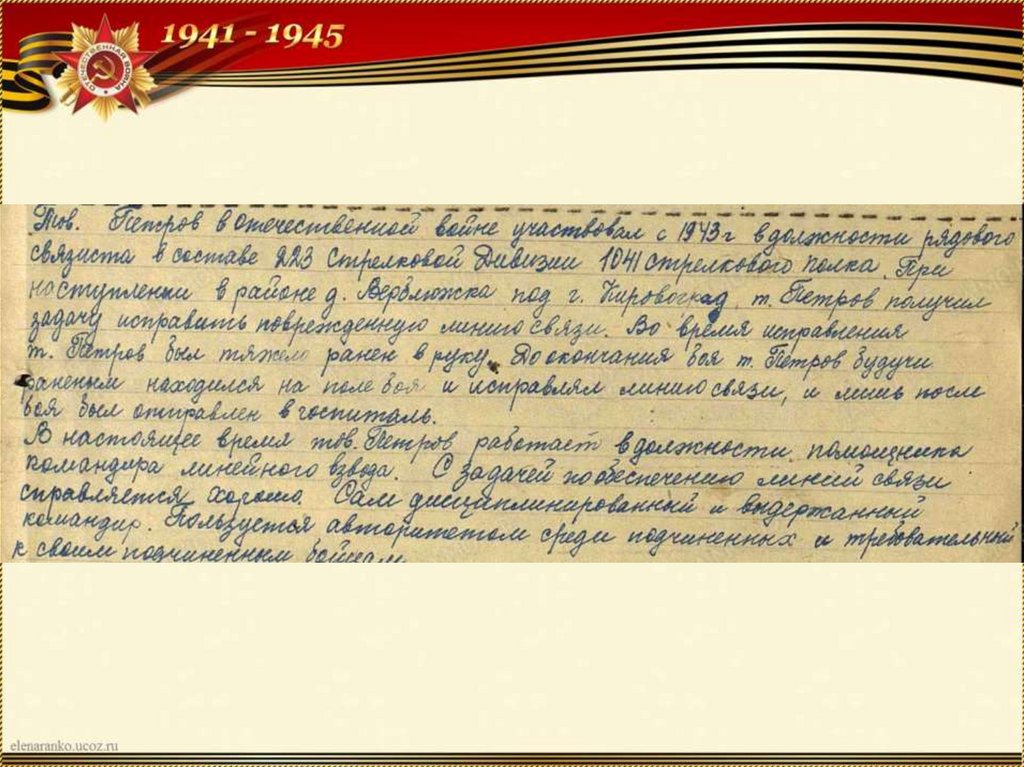 1941 - 1945
ОТЕЧЕСТВЕННАЯ ВОЙНА
Тов. Петров в Отечественной войне участвовал с 1943 г в должности рядового
связиста в составе 223 Стрелковой Дивизии 1041 стрелкового полка. При
наступлении в районе д. Верблюжка под г. Кировоград, т. Петров получил
задачу исправить поврежденную линию связи. Во время исправления
т. Петров был тяжело ранен в руку. До окончания боя т. Петров будучи
раненым находился на поле боя и исправлял линию связи, и лишь после
боя был отправлен в госпиталь.
В настоящее время тов. Петров работает в должности помощника
командира линейного взвода. С задачей по обеспечению линий связи
справляется хорошо. Сам дисциплинированный и выдержанный
командир. Пользуется авторитетом среди подчиненных и требовательный
к своим подчиненным бойцам.
elenaranko.ucoz.ru